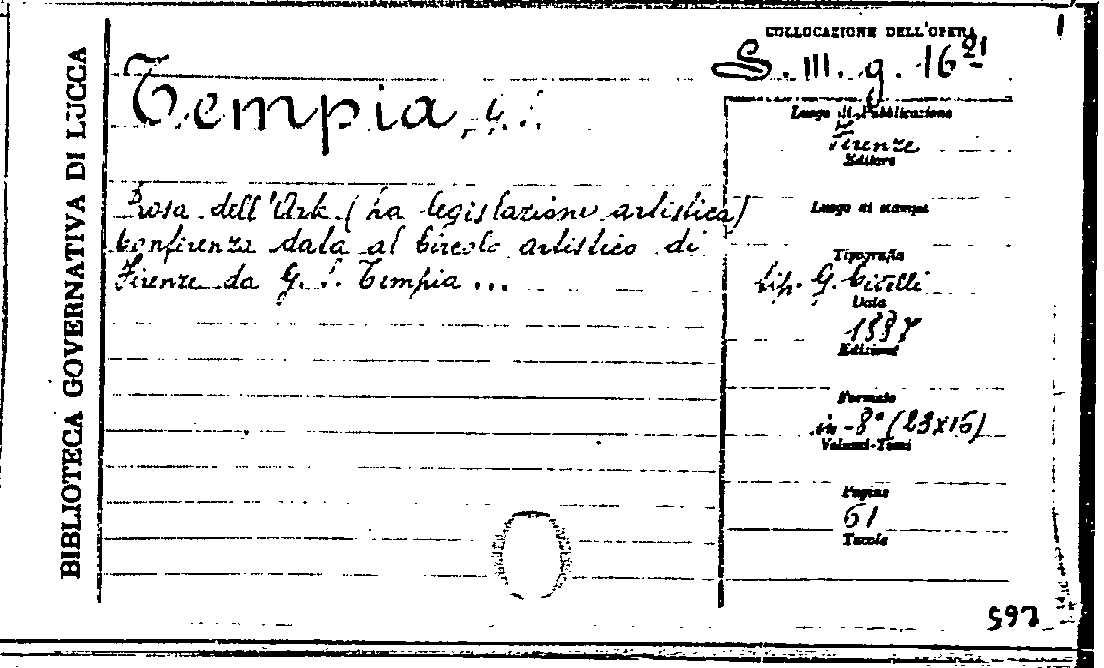 BIBLIOTECA GOVERNATIVA DI LUCCA
COLLOCAZIONE DELL'OPERA
S. III. g. 16 21
Tempia,
Prosa dell'Ark (La legislazione artistica)
Conferenza data al Circolo artistico di
Firenze da G. Tempia ...
Luogo di Pubblicazione
Firenze
Editore
Luogo di stampa
Tipografia
tip. G. Civelli
Data
Edizione
Formato
in-8° (23x15)
Volumi-Tomi
Pagine
61
Tavole